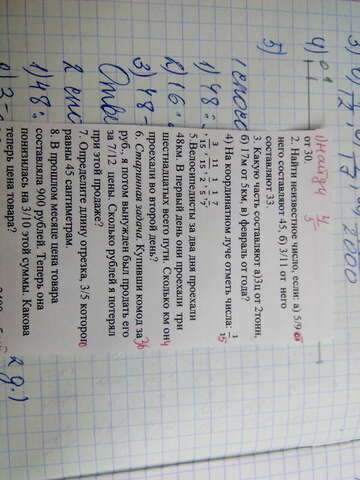 1) Найти 4/
от 30.
2. Найти неизвестное число, если: а) 5/9 от
него составляют 45, б) 3/11 от него
составляют 33.
3. Какую часть составляют а)3ц от 2тонн,
б) 17м от 5км, в) февраль от года?
4) На координатном луче отметь числа: 1/15
, 3/15, 11/15, 1/2, 1/5, 7/
5.Велосипедисты за два дня проехали
48км. В первый день они проехали три
шестнадцатых всего пути. Сколько км они
проехали во второй день?
6. Старинная задача. Купивши комод за 36
руб., я потом вынужден был продать его
за 7/12 цены. Сколько рублей я потерял
при этой продаже?
7. Определите длину отрезка, 3/5 которого
равны 45 сантиметрам.
8. В прошлом месяце цена товара
составляла 900 рублей. Теперь она
понизилась на 3/10 этой суммы. Какова
теперь цена товара?
4)
5)
1 способ
1) 48:
2) 16
3) 48-
Отве
2 спо
1) 48: